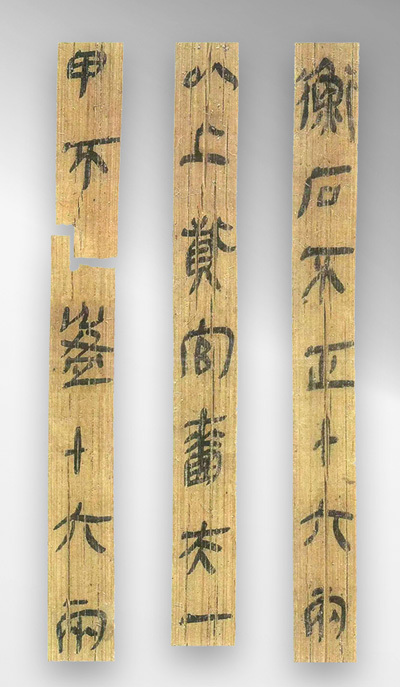 衡石不正十六兩
以上貲官嗇夫一
甲不盈十六兩